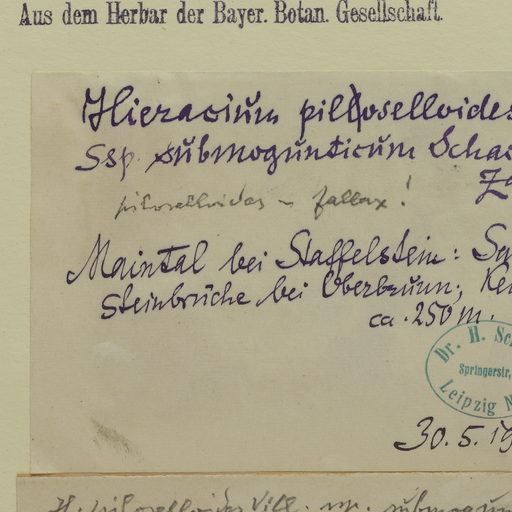 Aus dem Herbar der Bayer. Botan. Gesellschaft.
Hieracium piloselloides
Ssp. submogunticum
piloselloides – fallax!
Maintal bei Staffelstein:
Steinbrüche bei Oberbrunn;
ca. 250 m.
Dr. H.
Springerstr.
Leipzig N
30.5.19
H. piloselloides Vill.